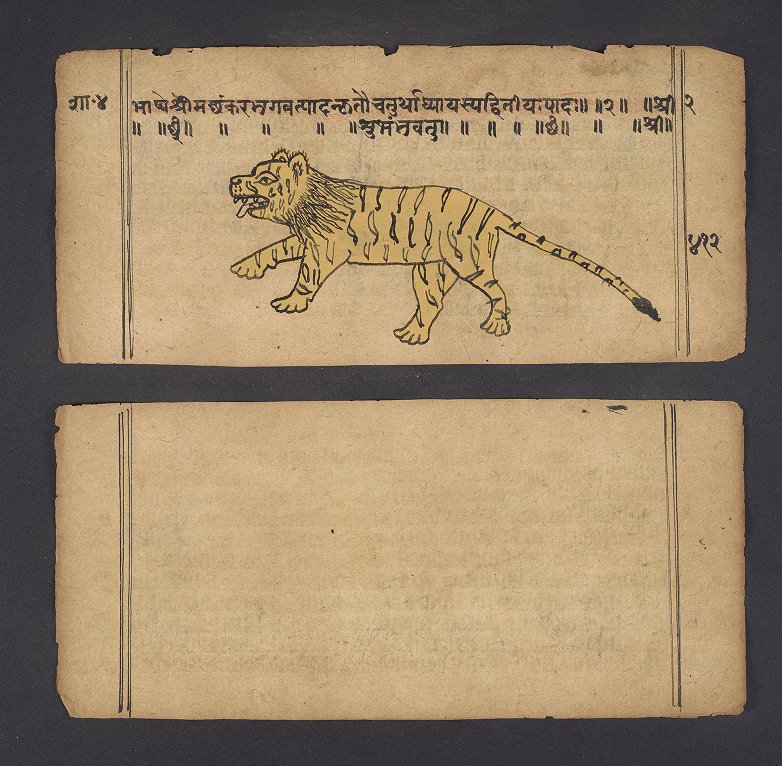 शा॰४ भाष्ये श्रीमछंकरभगवत्पादकृतौ चतुर्थाध्यायस्यद्वितीयःपादः॥ ॥२॥ ॥श्री २
॥ ॥छ॥ ॥ ॥ ॥ ॥शुभंभवतु॥ ॥ ॥ ॥ ॥छ॥ ॥ ॥श्री॥
४१२